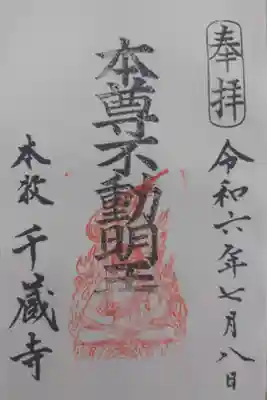 奉拝
令和六年七月八日
本尊不動明王
本教 千蔵寺